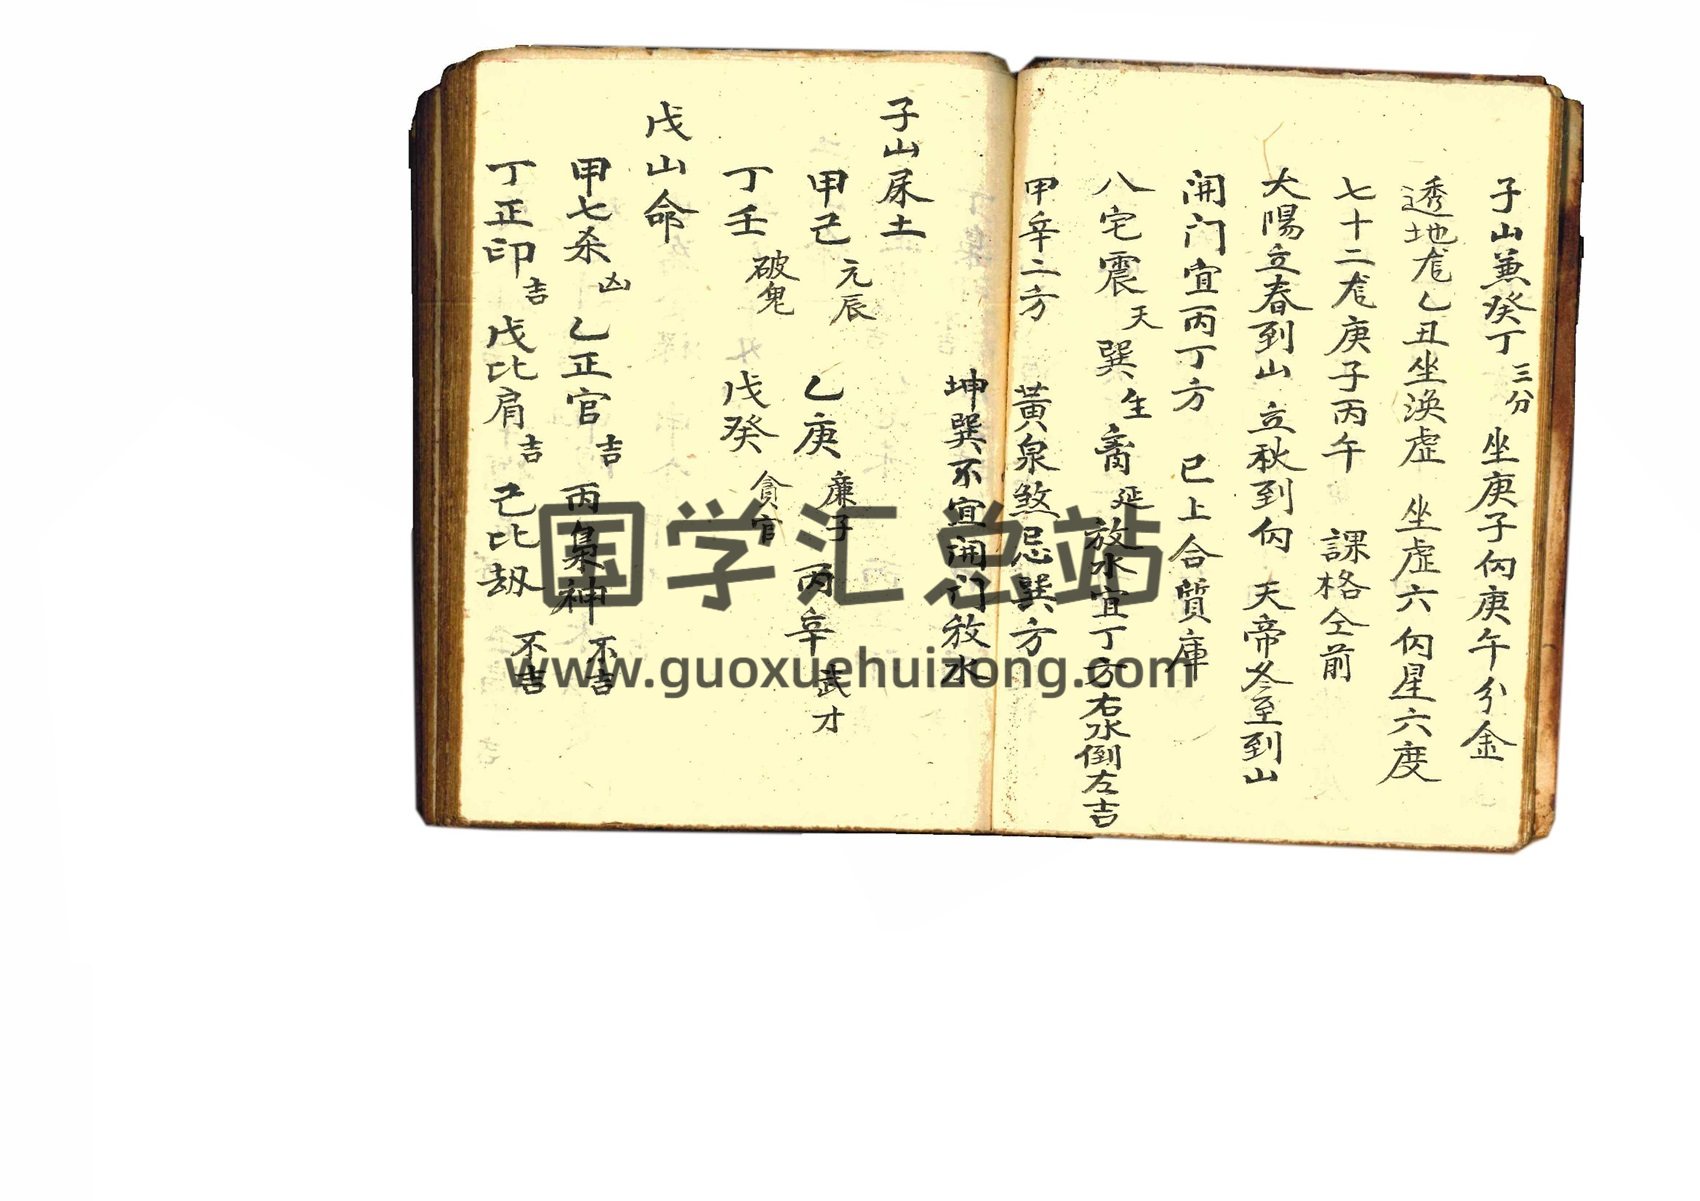 子山兼癸丁三分 坐庚子向庚午分金
透地龙乙丑坐渙虚 坐虚六向星六度
七十二龙庚子丙午 課格仝前
太陽立春到山 立秋到向 天帝冬至到山
開门宜丙丁方 已上合質庫
八宅震天 巽生 离延 放水宜丁方右水倒左吉
甲辛二方 黃泉煞忌巽方
坤巽不宜開门放水
子山 土
甲己元辰 乙庚廉子 丙辛武才
丁壬破鬼 戊癸貪官
戊山命
甲七杀凶 乙正官吉 丙梟神不吉
丁正印吉 戊比肩吉 己比劫不吉
国学汇总站
www.guoxuehuizong.com